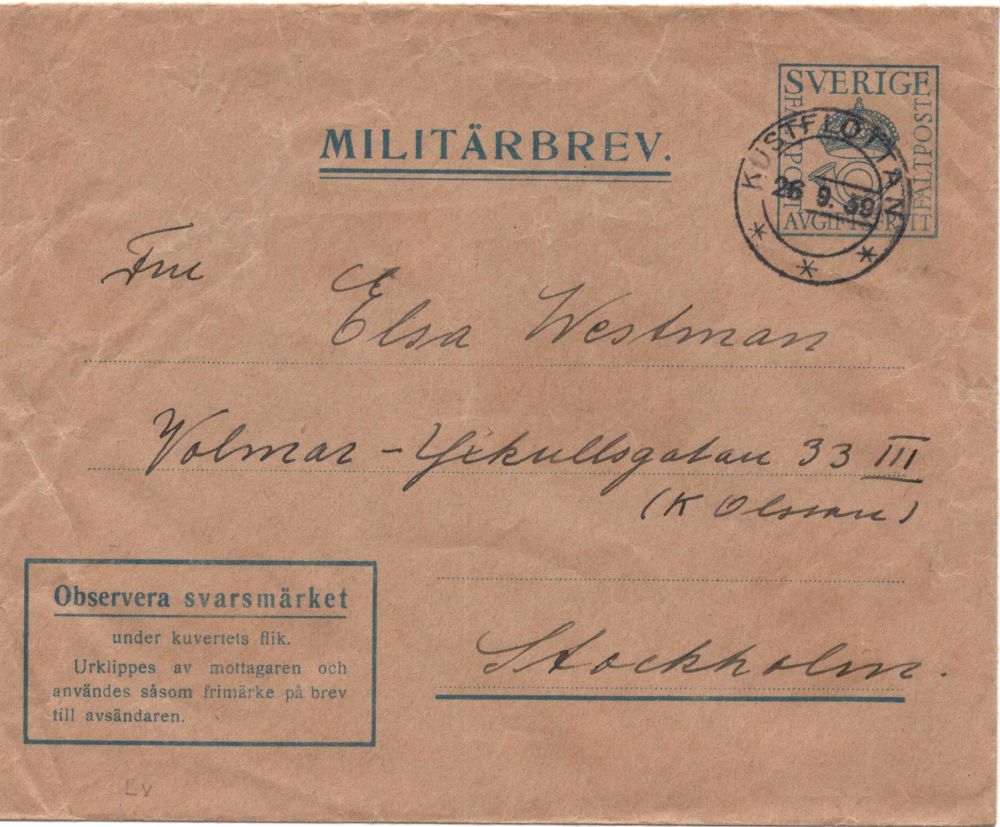 SVERIGE
FÄLTPOST
FÄLTPOST
AVGIFTSFRITT
KUSTFLOTTAN
26 9. 39
MILITÄRBREV.
Fru
Elsa Westman
Volmar-Yxkullsgatan 33 III
(K Olsson)
Stockholm.
Observera svarsmärket
under kuvertets flik.
Urklippes av mottagaren och
användes såsom frimärke på brev
till avsändaren.
LV